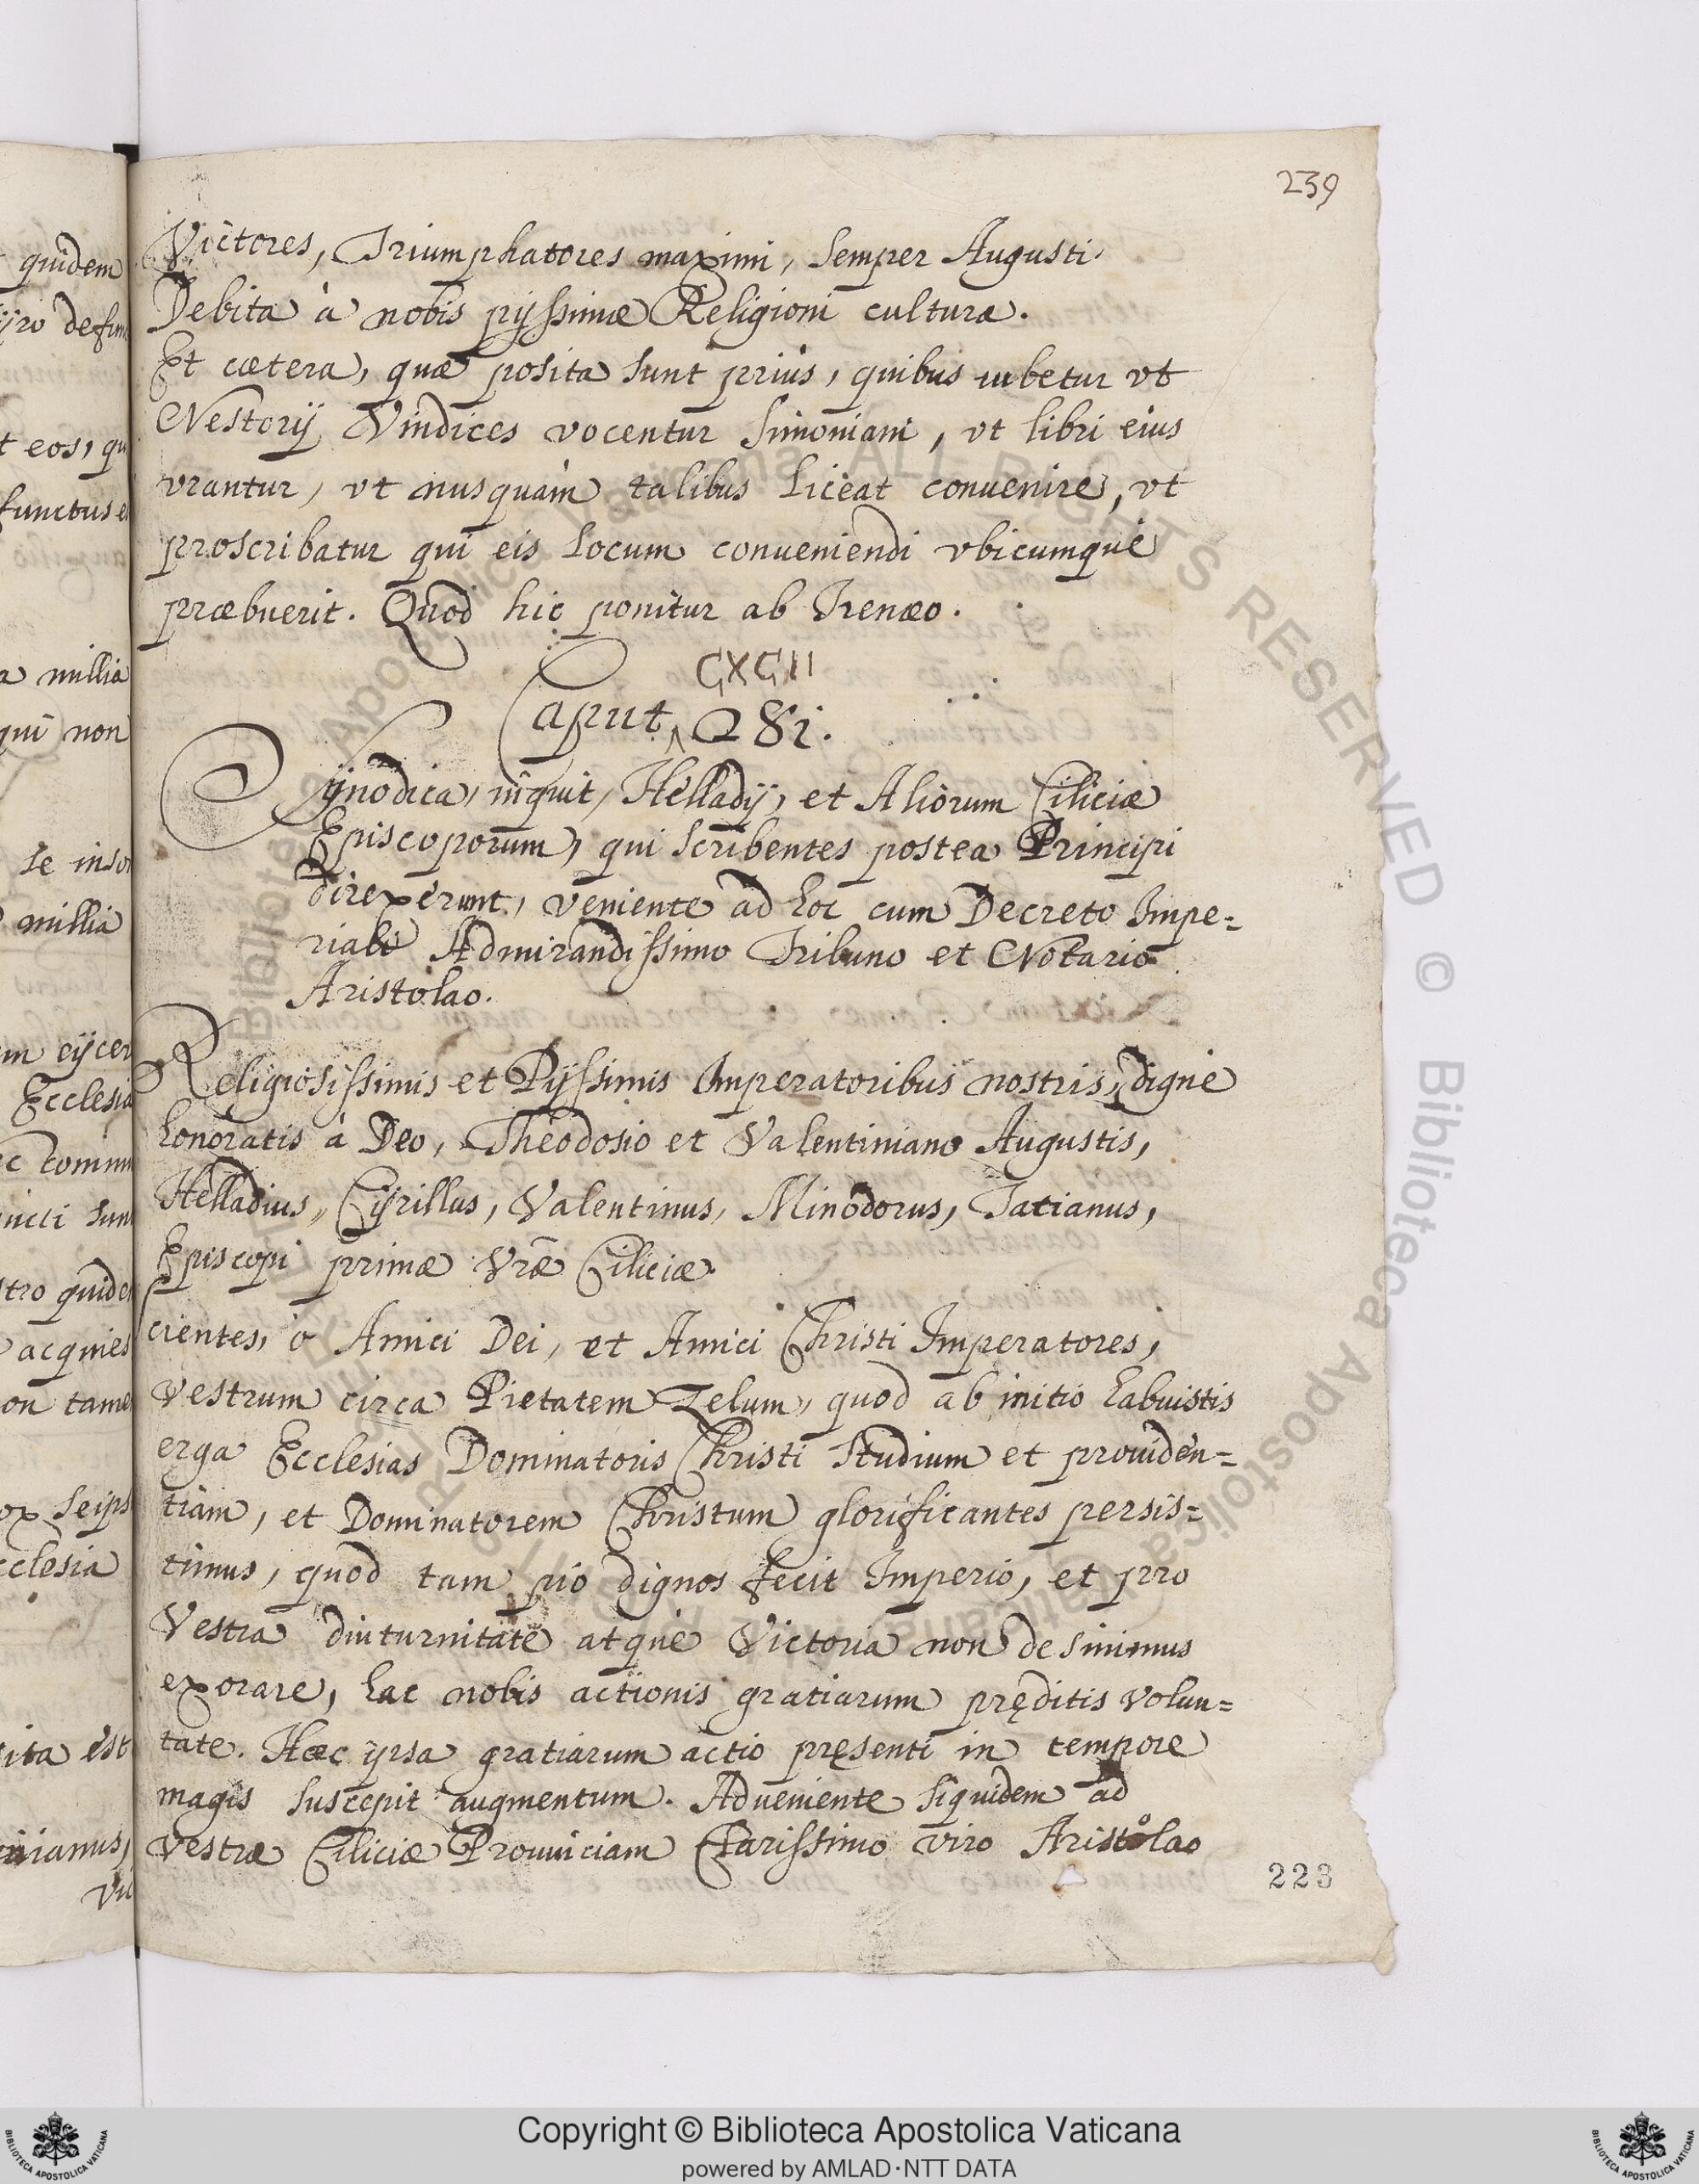 239
Victores, Triumphatores maximi, semper Augusti.
Debita à nobis pijssimæ Religioni cultura.
Et cætera, quæ posita sunt priùs, quibus iubetur vt
Nestorij Vindices vocentur Simoniani, vt libri eius
vrantur, vt nusquàm talibus liceat conuenire, vt
proscribatur qui eis locum conueniendi vbicumque
præbuerit. Quod hic ponitur ab Irenæo.
CXCII
Caput 281.
Synodica, inquit, Helladij, et Aliorum Ciliciæ
Episcoporum, qui scribentes postea Principi
direxerunt, veniente ad hoc cum Decreto Impe=
riali Admirandissimo Tribuno et Notario
Aristolao.
Religiosissimis et Pijssimis Imperatoribus nostris, digne
honoratis à Deo, Theodosio et Valentiniano Augustis,
Helladius, Cyrillus, Valentinus, Minodorus, Tatianus,
Episcopi primæ Vræ Ciliciæ.
Scientes, ò Amici Dei, et Amici Christi Imperatores,
vestrum circa Pietatem Zelum, quod ab initio habuistis
erga Ecclesias Dominatoris Christi Studium et prouiden=
tiam, et Dominatorem Christum glorificantes persis=
timus, quod tam pio dignos fecit Imperio, et pro
Vestra diuturnitate atque Victoria non desinimus
exorare, hac nobis actionis gratiarum pręditis volun=
tate. Hæc ipsa gratiarum actio pręsenti in tempore
magis suscepit augmentum. Adueniente siquidem ad
vestræ Ciliciæ Prouinciam Clarissimo viro Aristolao
223
quidem
eos, qu
functus e
millia
qui non
se inso
millia
eijcer
Ecclesia
tro quide
acquies
on tame
seips
cclesia
ita est
Copyright © Biblioteca Apostolica Vaticana
powered by AMLAD·NTT DATA